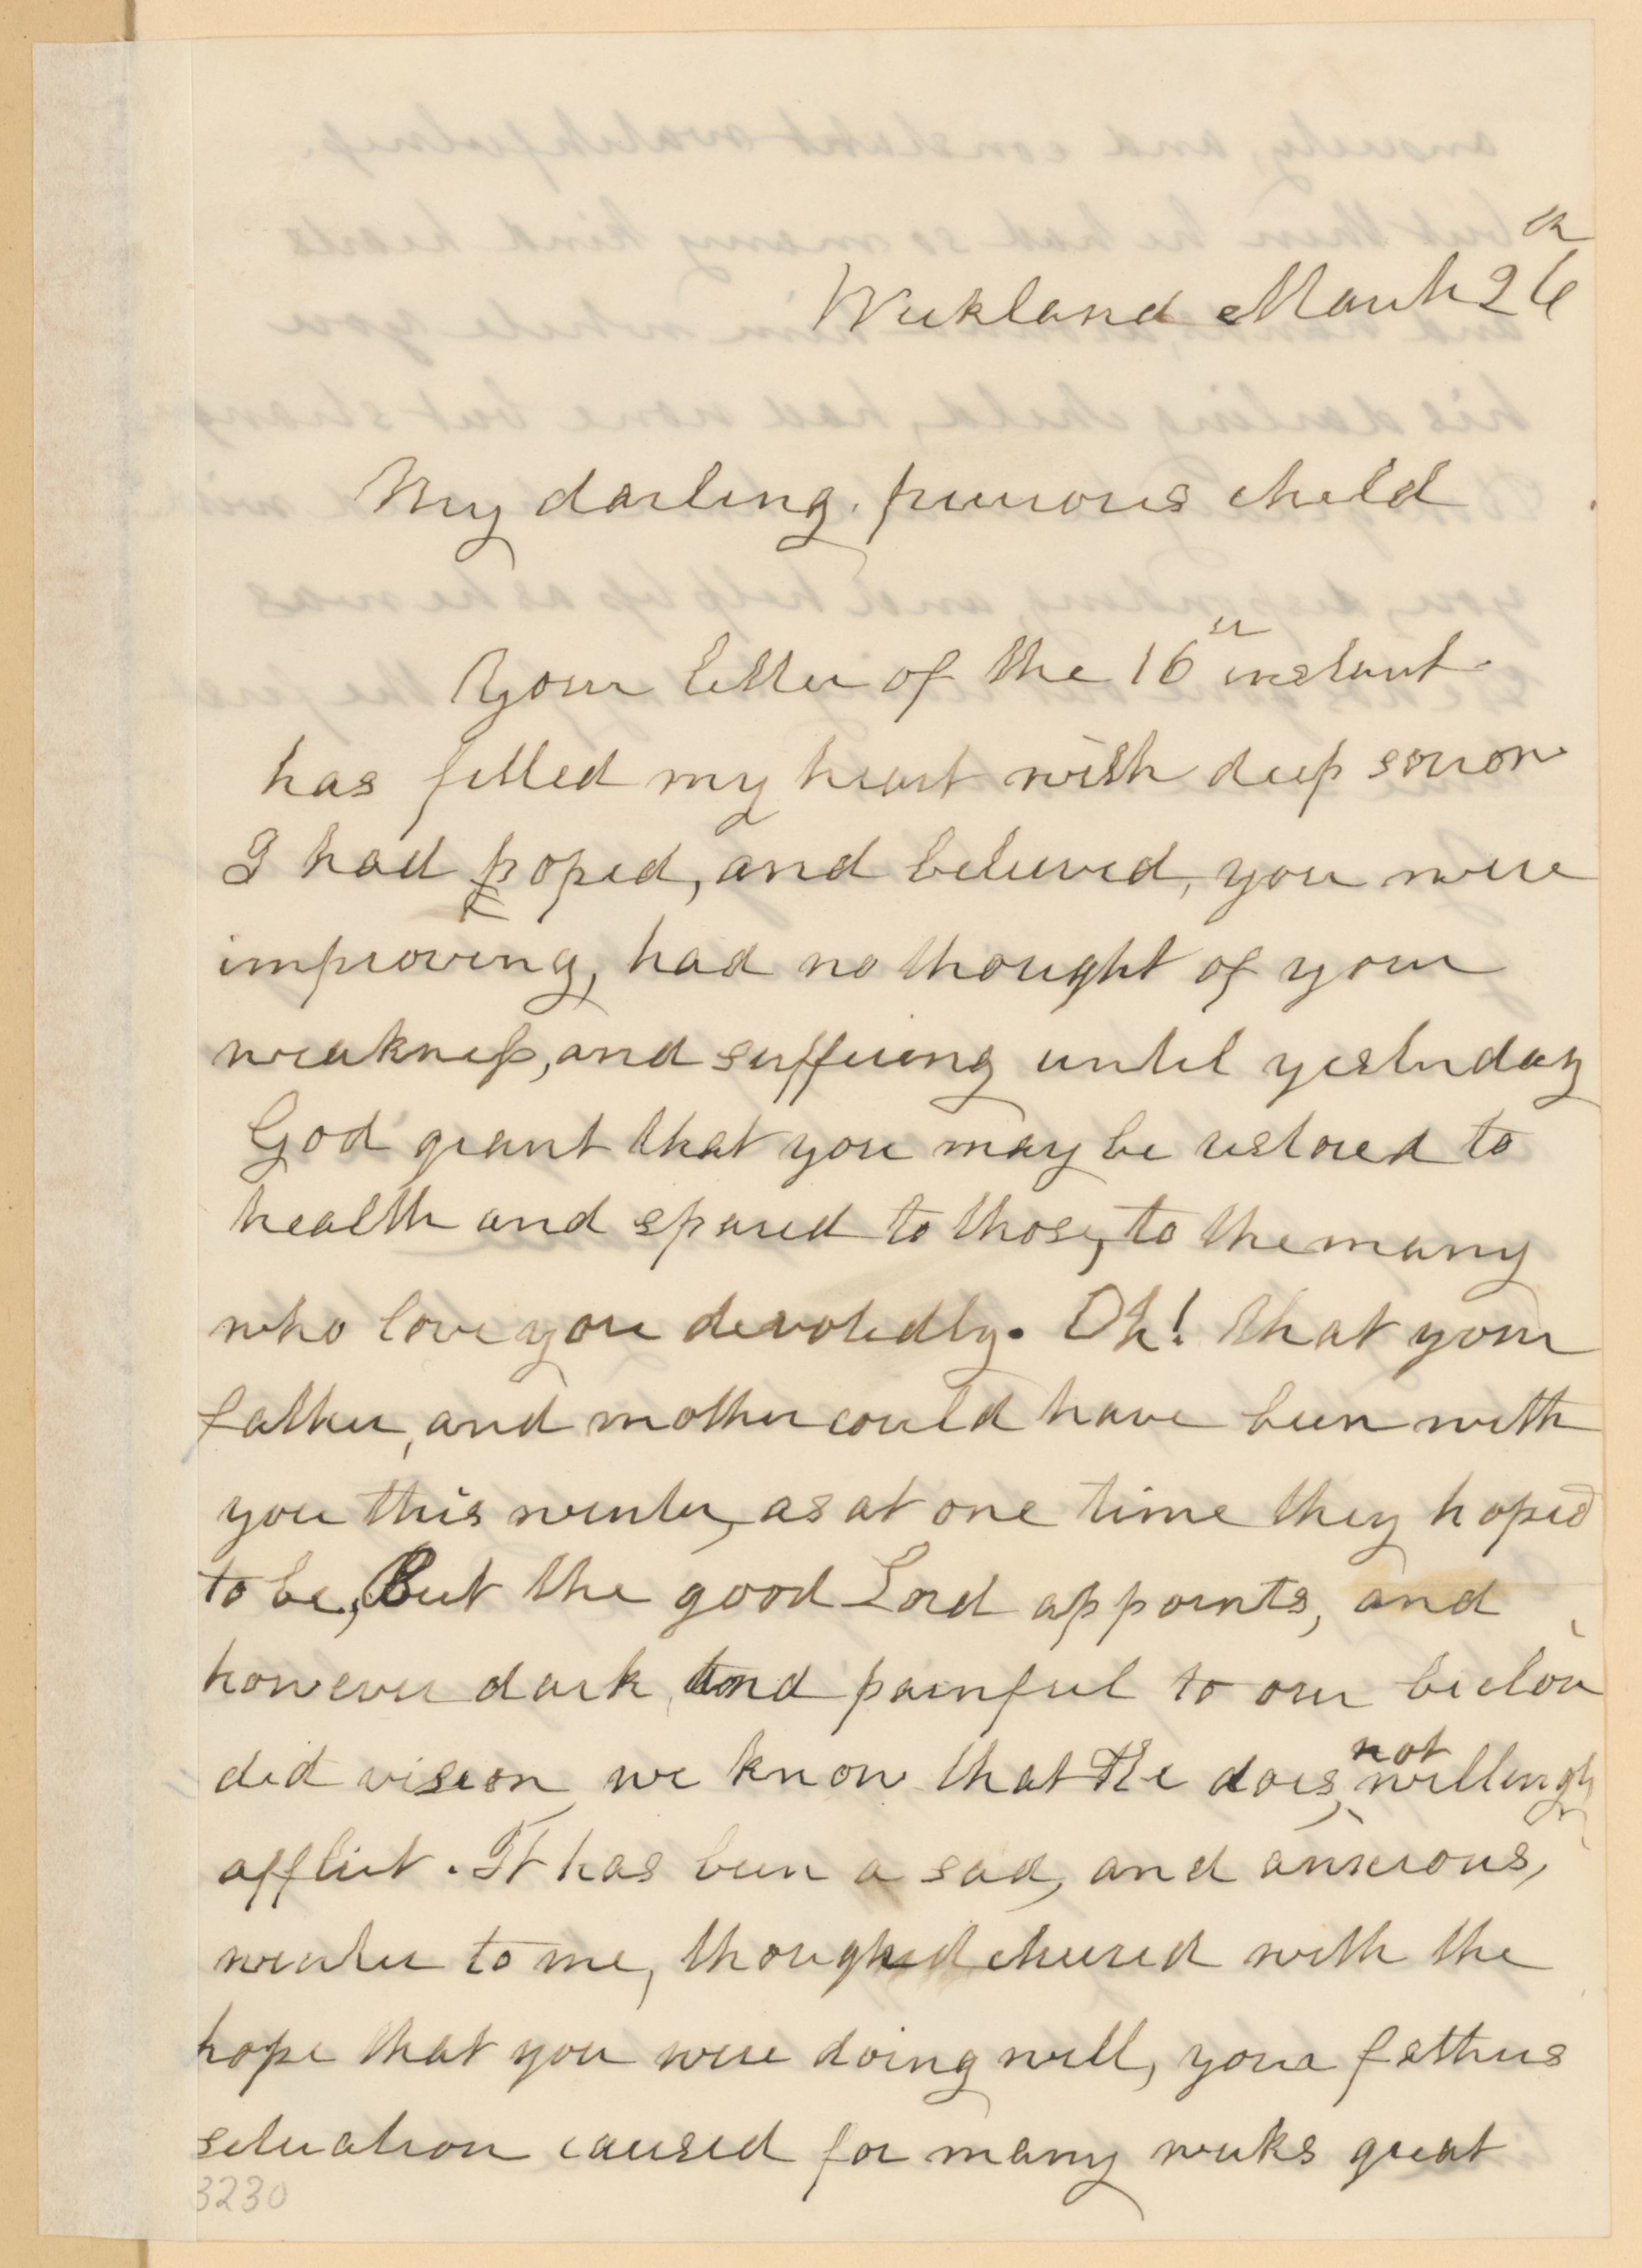 Wickland March 26th
My darling precious child
Your letter of the 16th instant
has filled my heart with deep sorrow
I had hoped, and believed, you were
improving, had no thought of your
weakness, and suffering until yesterday
God grant that you may be restored to
health and spared to those, to the many
who love you devotedly. Oh! that your
father, and mother could have been with
you this winter, as at one time they hoped
to be, But the good Lord appoints, and
however dark, and painful to our beclou
ded vision, we know that He does not willingly
afflict. It has been a sad, and anxious,
winter to me, though cheered with the
hope that you were doing well, your fathers
situation caused for many weeks great
3230